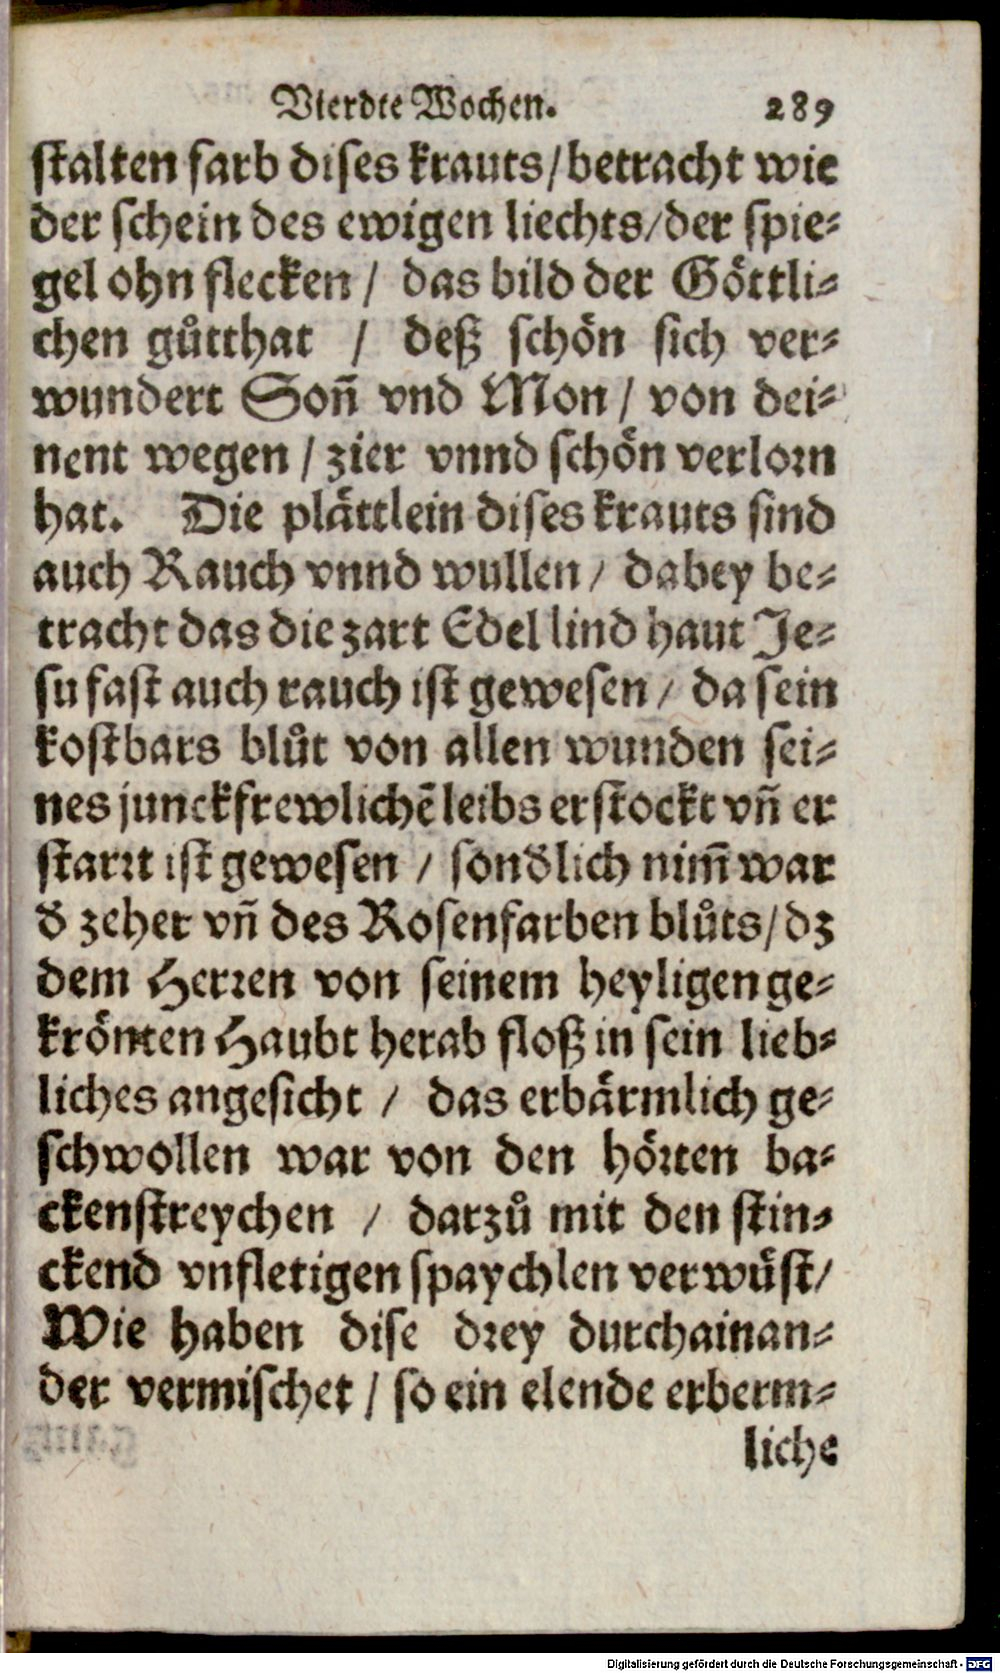 Vierdte Wochen. 289
stalten farb dises krauts/betracht wie
der schein des ewigen liechts/der spie⸗
gel ohn flecken / das bild der Göttli⸗
chen gůtthat / deß schön sich ver⸗
wundert Son̄ vnd Mon / von dei⸗
nent wegen / zier vnnd schön verlorn
hat. Die plättlein dises krauts sind
auch Rauch vnnd wullen / dabey be⸗
tracht das die zart Edel lind haut Je⸗
su fast auch rauch ist gewesen / da sein
kostbars blůt von allen wunden sei⸗
nes junckfrewlichē leibs erstockt vn̄ er
starrt ist gewesen / sonđlich nim̄ war
đ zeher vn̄ des Rosenfarben blůts/dz
dem Herren von seinem heyligen ge⸗
krönten Haubt herab floß in sein lieb⸗
liches angesicht / das erbärmlich ge⸗
schwollen war von den hörten ba⸗
ckenstreychen / darzů mit den stin⸗
ckend vnfletigen spaychlen verwüst/
Wie haben dise drey durchainan⸗
der vermischet / so ein elende erberm⸗
liche
Digitalisierung gefördert durch die Deutsche Forschungsgemeinschaft - DFG